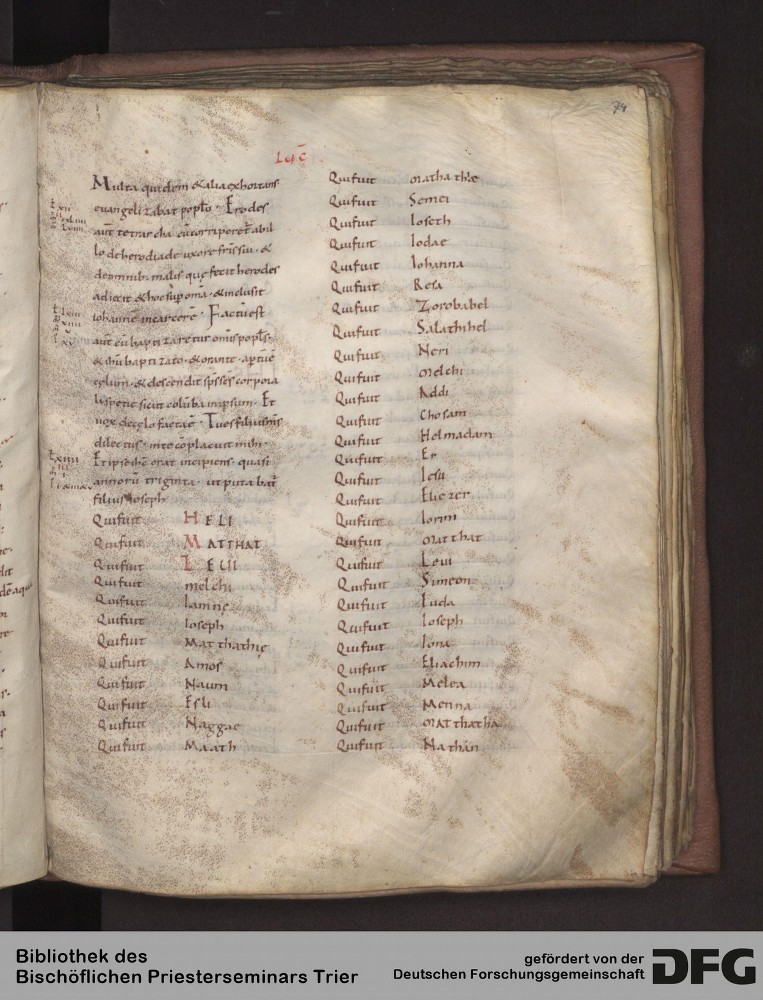 74
Luc̄
Multa quidem & alia exhortans
euangelizabat popłm · Erodes
aut̄ tetrarcha cū corriperet̄ abil
lo de herodiade uxore fr̄is sui · &
de omnib; malis quę fecit herodes
adiecit & hoc sup omā · & inclusit
iohannē in carcerē · Factū est
aut̄ cū baptizaretur omīs popłs ·
& ih̄u baptizato · & orante · aptū ē
cęlum · & descendit sp̄s sc̄s corpora
li specie sicut colūba in ipsum · Et
uox de cęlo facta ē · Tu es filius m̄s
dilectus · in te cōplacuit mihi ·
Et ipse ih̄s erat incipiens · quasi
annorū triginta · ut putabat̄
filius ioseph
Qui fuit HELI
Qui fuit MATTHAT
Qui fuit LEUI
Qui fuit melchi
Qui fuit Iamnę
Qui fuit Ioseph
Qui fuit Matthathię
Qui fuit Amos
Qui fuit Naum
Qui fuit Esli
Qui fuit Naggae
Qui fuit Maath
Qui fuit mathathię
Qui fuit Semei
Qui fuit Ioseth
Qui fuit Iodae
Qui fuit Iohanna
Qui fuit Resa
Qui fuit Zorobabel
Qui fuit Salathihel
Qui fuit Neri
Qui fuit melchi
Qui fuit Addi
Qui fuit Chosam
Qui fuit Helmadam
Qui fuit Er
Qui fuit Iesu
Qui fuit Eliezer
Qui fuit Iorim
Qui fuit matthat
Qui fuit Leui
Qui fuit Simeon
Qui fuit Iuda
Qui fuit Ioseph
Qui fuit Iona
Qui fuit Eliachim
Qui fuit Melea
Qui fuit Menna
Qui fuit matthatha
Qui fuit Nathan
Bibliothek des
Bischöflichen Priesterseminars Trier
gefördert von der
Deutschen Forschungsgemeinschaft
DFG